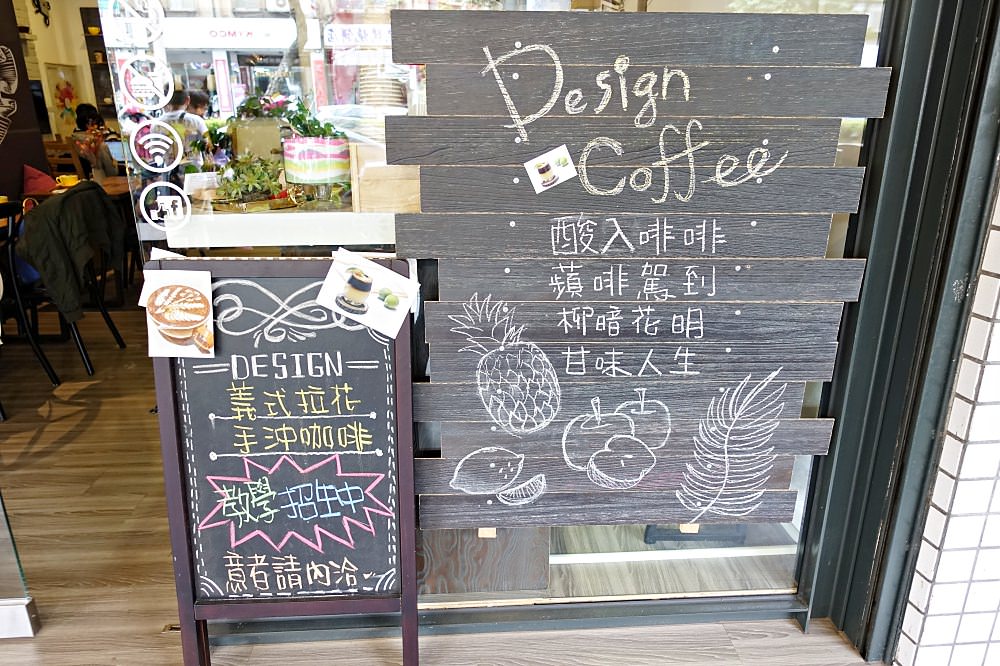 KIMCO
Design
Coffee
酸入啡啡
蘋啡駕到
柳暗花明
甘味人生
DESIGN
義式拉花
手沖咖啡
教學招生中
意者請內洽